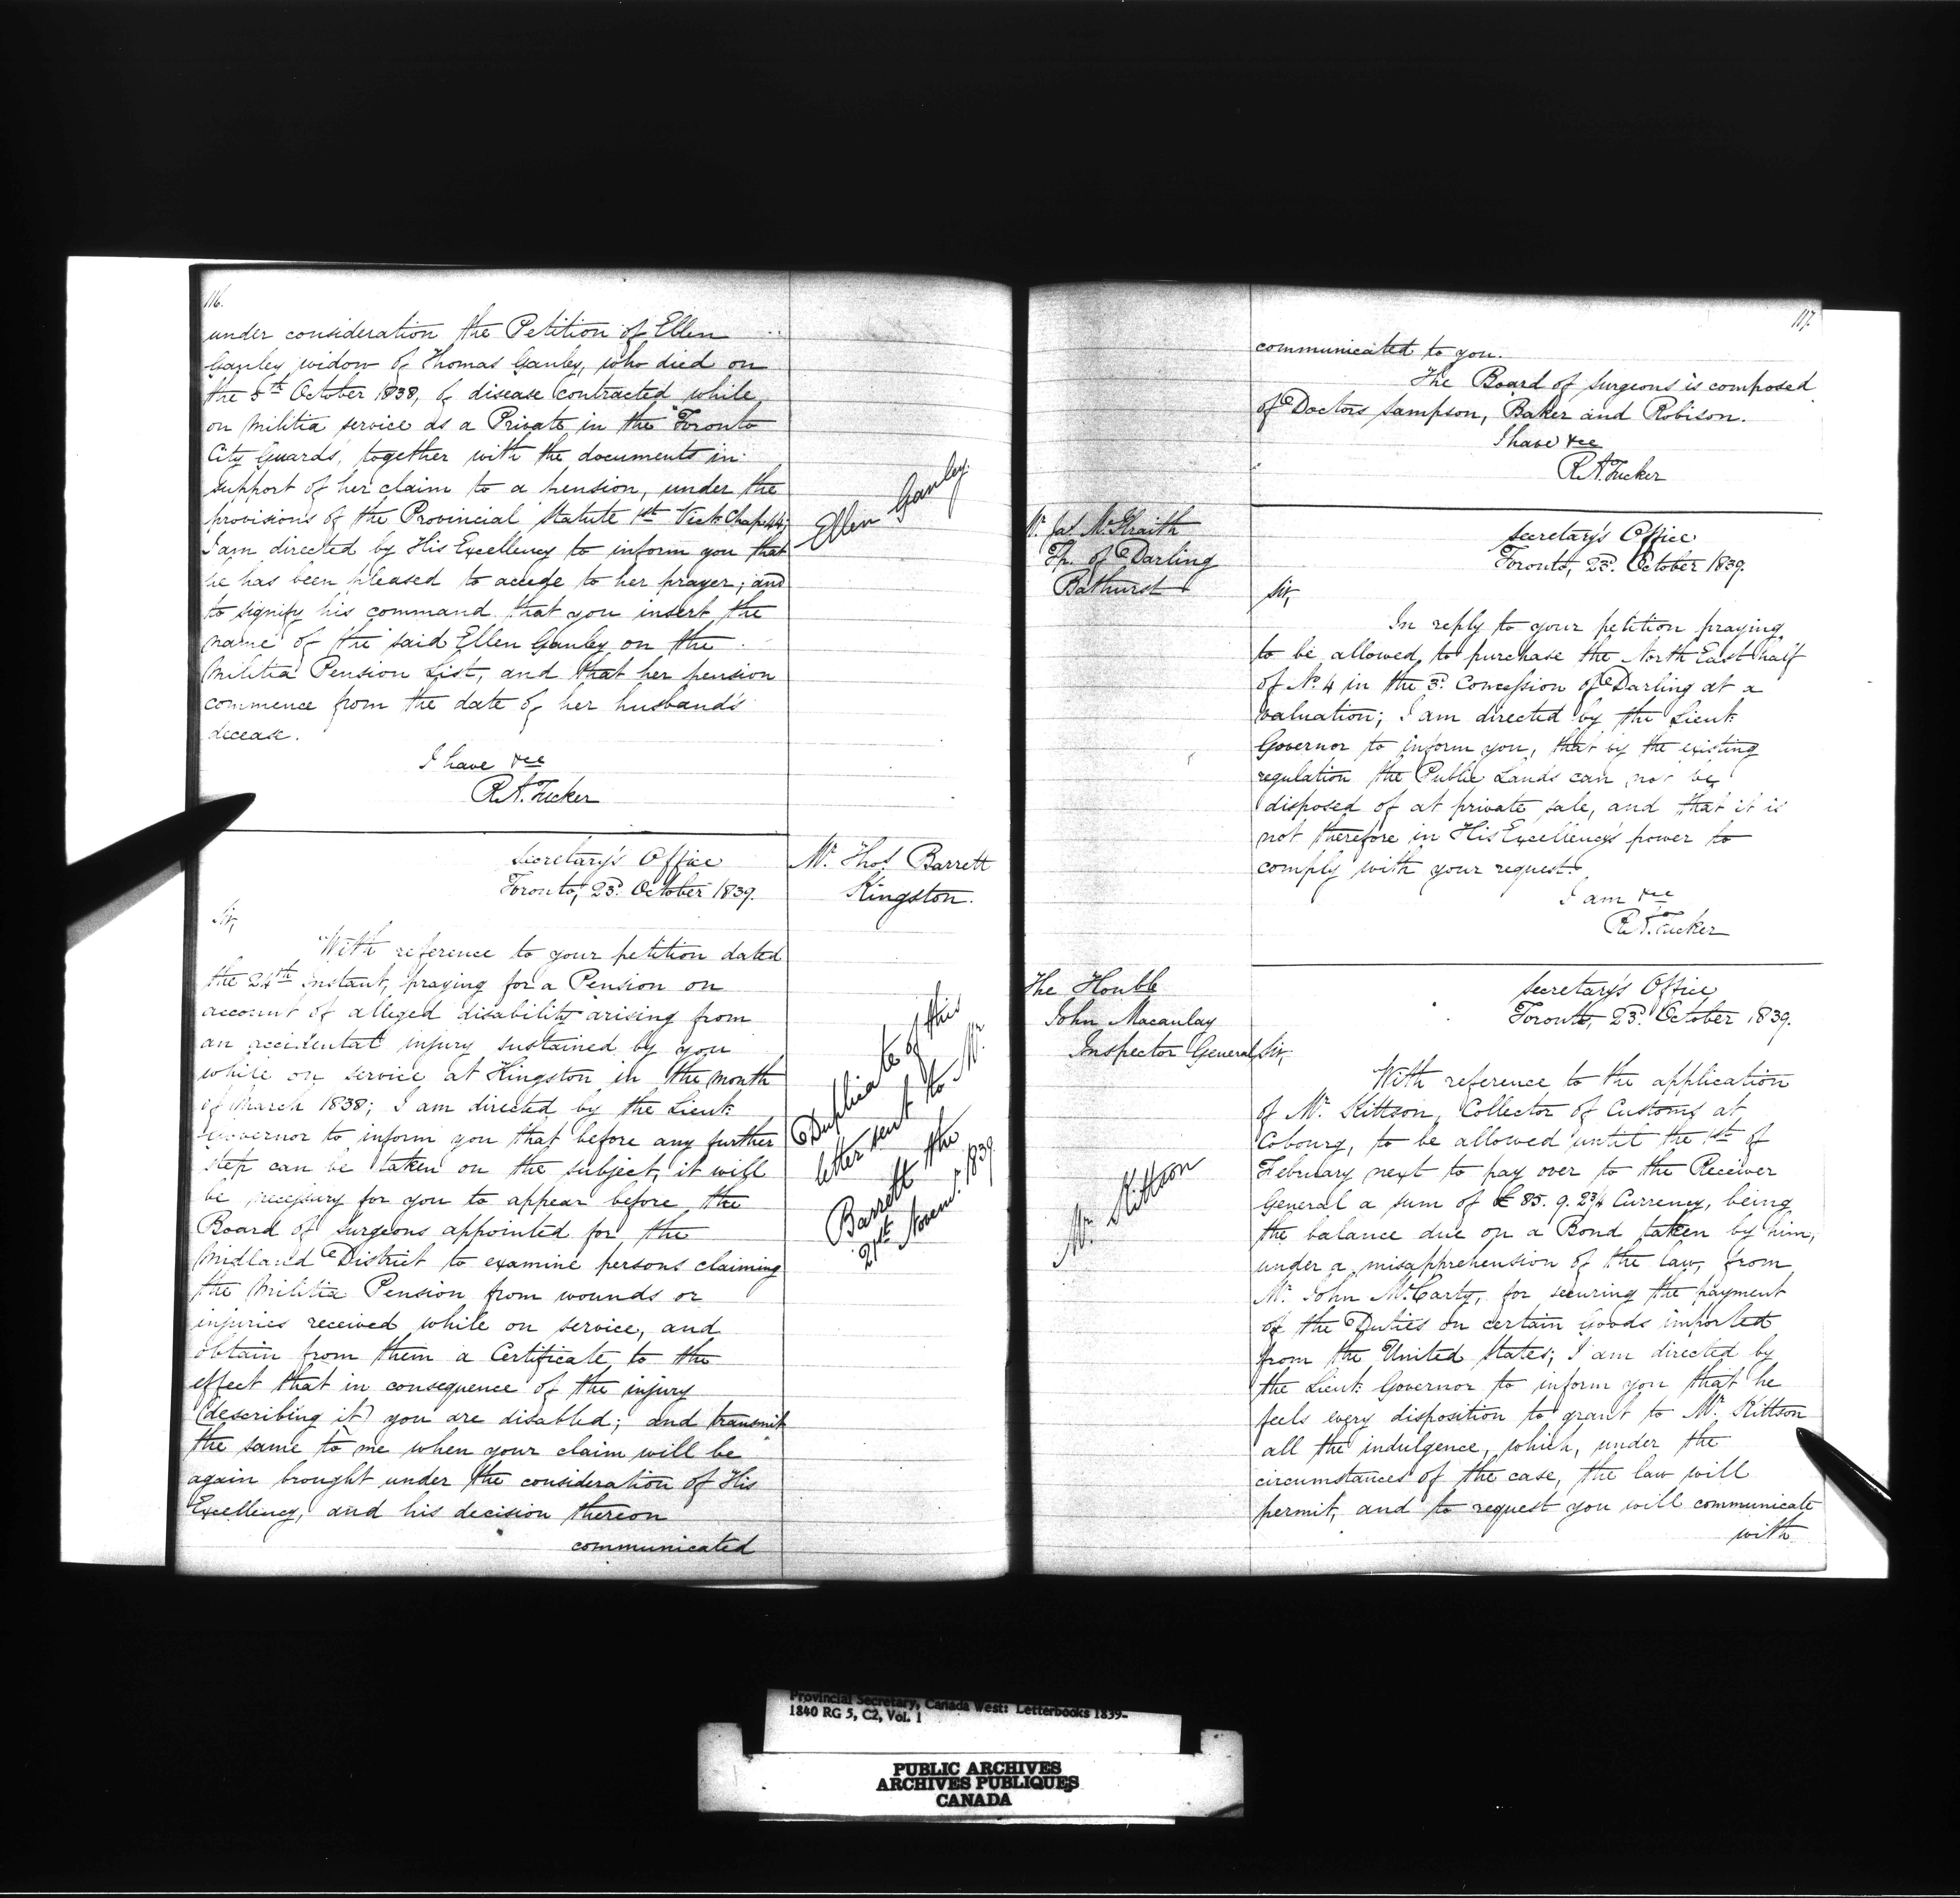 116.
under consideration the Petition of Ellen
Ganley widow of Thomas Ganley, who died on
the 5th October 1838, of disease contracted while
on Militia service as a Private in the Toronto
City Guards, together with the documents in
support of her claim to a pension, under the
provisions of the Provincial Statute 1st Vict. Chap. 44;
I am directed by His Excellency to inform you that
he has been pleased to accede to her prayer; and
to signify his command that you insert the
name of the said Ellen Ganley on the
Militia Pension List, and that her pension
commence from the date of her husband's
decease.
I have &ce
R.A. Tucker
Ellen Ganley
Secretary's Office
Toronto, 23d. October 1839.
Mr. Thos. Barrett
Kingston.
Sir,
With reference to your petition dated
the 24th instant, praying for a Pension on
account of alleged disability arising from
an accidental injury sustained by you
while on service at Kingston in the month
of March 1838; I am directed by the Lieut.
Governor to inform you that before any further
step can be taken on the subject, it will
be necessary for you to appear before the
Board of Surgeons appointed for the
Midland District to examine persons claiming
the Militia Pension from wounds or
injuries received while on service, and
obtain from them a Certificate to the
effect that in consequence of the injury
(describing it) you are disabled; and transmit
the same to me when your claim will be
again brought under the consideration of His
Excellency, and his decision thereon
communicated
Duplicate of this
letter sent to Mr.
Barrett the
21st Novemr. 1839
117.
communicated to you.
The Board of Surgeons is composed
of Doctors Sampson, Baker and Robison.
I have &ce
R.A. Tucker
Mr. Jas. McGraith
Tp. of Darling
Bathurst
Secretary's Office
Toronto, 23d. October 1839.
Sir,
In reply to your petition praying
to be allowed to purchase the North East half
of No. 4 in the 3d. Concession of Darling at a
valuation; I am directed by the Lieut.
Governor to inform you, that by the existing
regulation the Public Lands can not be
disposed of at private sale, and that it is
not therefore in His Excellency's power to
comply with your request.
I am &ce
R.A. Tucker
The Honble
John Macaulay
Inspector General
Secretary's Office
Toronto, 23d. October 1839.
Sir,
With reference to the application
of Mr. Kittson, Collector of Customs at
Cobourg, to be allowed until the 1st of
February next to pay over to the Receiver
General a sum of £85. 9. 2¾ Currency, being
the balance due on a Bond taken by him,
under a misapprehension of the law, from
Mr. John McCarty, for securing the payment
of the Duties on certain Goods imported
from the United States; I am directed by
the Lieut. Governor to inform you that he
feels every disposition to grant to Mr. Kittson
all the indulgence, which, under the
circumstances of the case, the law will
permit, and to request you will communicate
with
Mr. Kittson
Provincial Secretary, Canada West: Letterbooks 1839-
1840 RG 5, C2, Vol. 1
PUBLIC ARCHIVES
ARCHIVES PUBLIQUES
CANADA